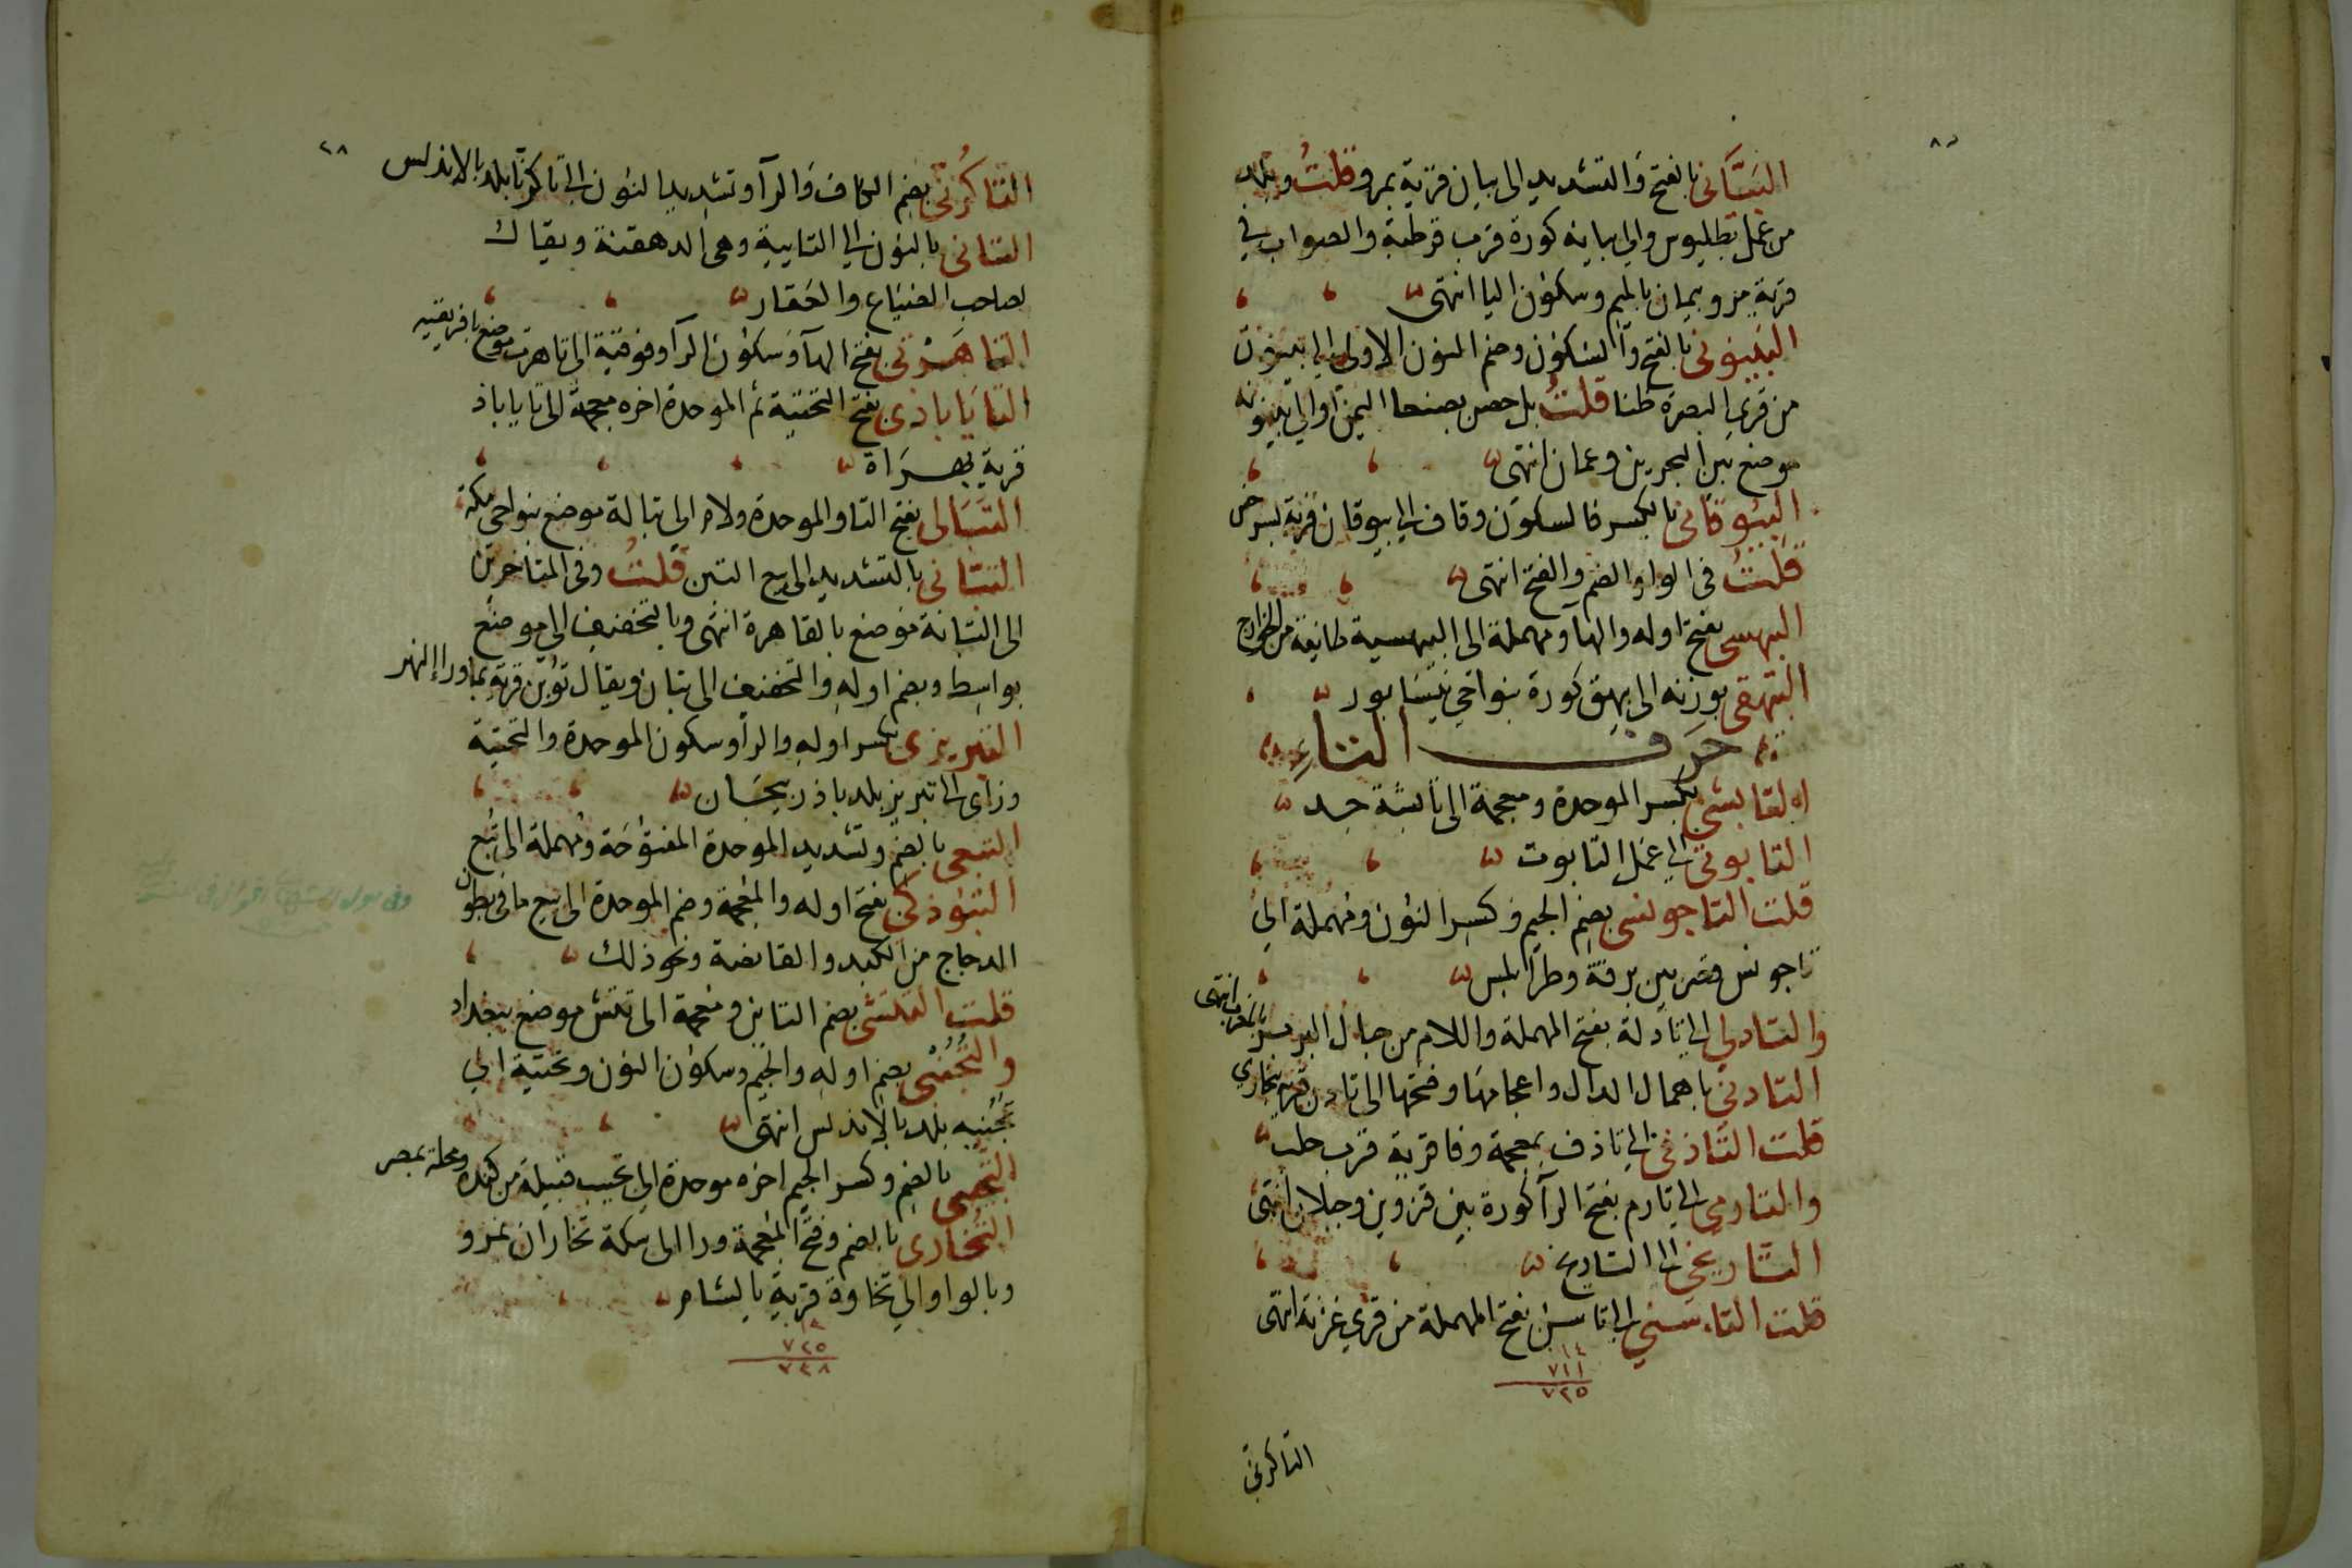 البيّاني بالفتح والتشديد الى بيان قرية بمرو قلت وبلد
من عمل بطليوس والى بيانه كورة قرب قرطبة والصواب في
قرية مرو بيمان بالميم وسكون اليا انتهى
البينوني بالفتح والسكون وضم النون الاولى الى بينون
من قرى البصرة ظنا قلت بل حصن بصنعا اليمن او الى بينونه
موضع بين البحرين وعمان انتهى
البيوقاني بالكسر فالسكون وقاف الى بيوقان قرية بسرخس
قلت في الواو الضم والفتح انتهى
البيهسي بفتح اوله والها ومهملة الى البيهسية طايفة من الخوارج
البيهقي بوزنه الى بيهق كورة بنواحي نيسابور
حرف التاء
التابشي بكسر الموحدة ومعجمة الى تابشة جد
التابوتي الى عمل التابوت
قلت التاجونسي بضم الجيم وكسر النون ومهملة الى
تاجونس قصر بين برقة وطرابلس
والتادلي الى تادلة بفتح المهملة واللام من جبال البربر بالمغرب انتهى
التادني باهمال الدال واعجامها وفتحها الى تادن قرية ببخارى
قلت التاذفي الى تاذف بمعجمة وفا قرية قرب حلب
والتارمي الى تارم بفتح الرا كورة بين قزوين وجيلان انتهى
التاريخي الى التاريخ
قلت التاسني الى تاسن بفتح المهملة من قرى غزنة انتهى
١٤
٧١١
٧٢٥
التاكرني
٢٨
التاكرني بضم الكاف والرا وتشديد النون الى تاكرنا بلد بالاندلس
التاني بالنون الى التايية وهي الدهقنة ويقال
لصاحب الضياع والعقار
التاهرتي بفتح الها وسكون الرا وفوقية الى تاهرت موضع بافريقيه
التايابادي بفتح التحتية ثم الموحدة اخره معجمة الى تاياباذ
قرية بهراة
التبالي بفتح التا والموحدة ولام الى تبالة موضع بنواحي مكة
التباني بالتشديد الى بيع التبن قلت وفي المتاخرين
الى التبانة موضع بالقاهرة انتهى وبالتخفيف الى موضع
بواسط وبضم اوله والتخفيف الى تبان ويقال توبن قرية بماورا النهر
التبريزي بكسر اوله والرا وسكون الموحدة والتحتية
وزاي الى تبريز بلد باذربيجان
التبعي بالضم وتشديد الموحدة المفتوحة ومهملة الى تبع
التبوذكي بفتح اوله والمعجمة وضم الموحدة الى بيع ما في بطون
الدجاج من الكبد والقانصة ونحو ذلك
قلت التتشي بضم التاين ومعجمة الى تتش موضع ببغداد
والتجني بضم اوله والجيم وسكون النون وتحتية الى
تجنيه بلد بالاندلس انتهى
التجيبي بالضم وكسر الجيم اخره موحدة الى تجيب قبيلة من كندة ومحلة بمصر
التخاري بالضم وفتح المعجمة ورا الى سكة تخاران بمرو
وبالواو الى تخاوة قرية بالشام
٧٢٥
٧٤٨